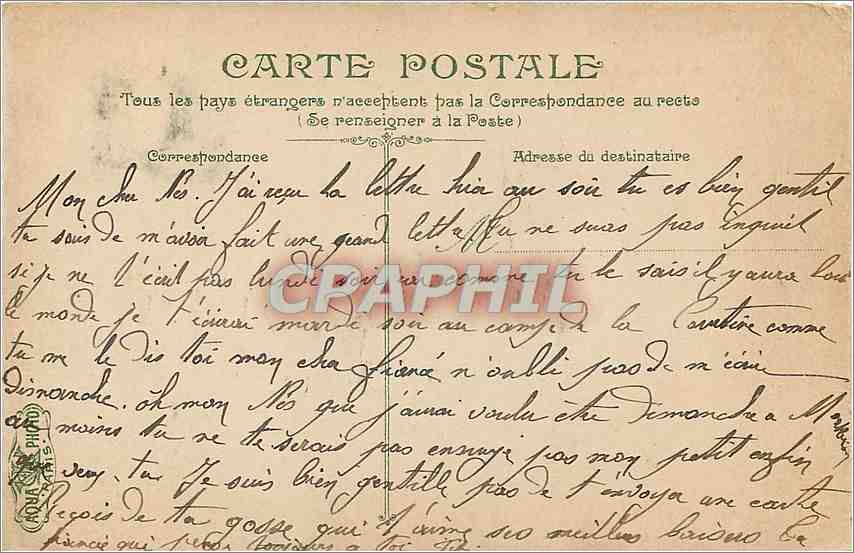 CARTE POSTALE
Tous les pays étrangers n'acceptent pas la Correspondance au recto
(Se renseigner à la Poste)
Correspondance
Adresse du destinataire
Mon cher J'ai reçu ta lettre hier au soir tu es bien gentil
tu sais de m'avoir fait une grand lettre ne suas pas inquiet
si je ne t'écrit pas lundi soir car comme tu le sais il y aura tout
le monde je t'écirai mardi soir au camp de la Courtine comme
tu me le dis toi mon cher fiancé n'oubli pas de m'écrire
dimanche. Oh mon que j'aurai voulu être dimanche a
au moins tu ne te serais pas ennuyé pas mon petit enfin
que veux-tu. Je suis bien gentille pas de t'envoyer une carte
Reçois de ta gosse qui t'aime ses meilleurs baisers ta
fiancé qui pense toujours a toi
AQUA PHOTO
PARIS
CPAPHIL